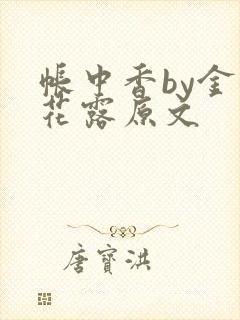 帐中香by金
花露原文
唐寶洪